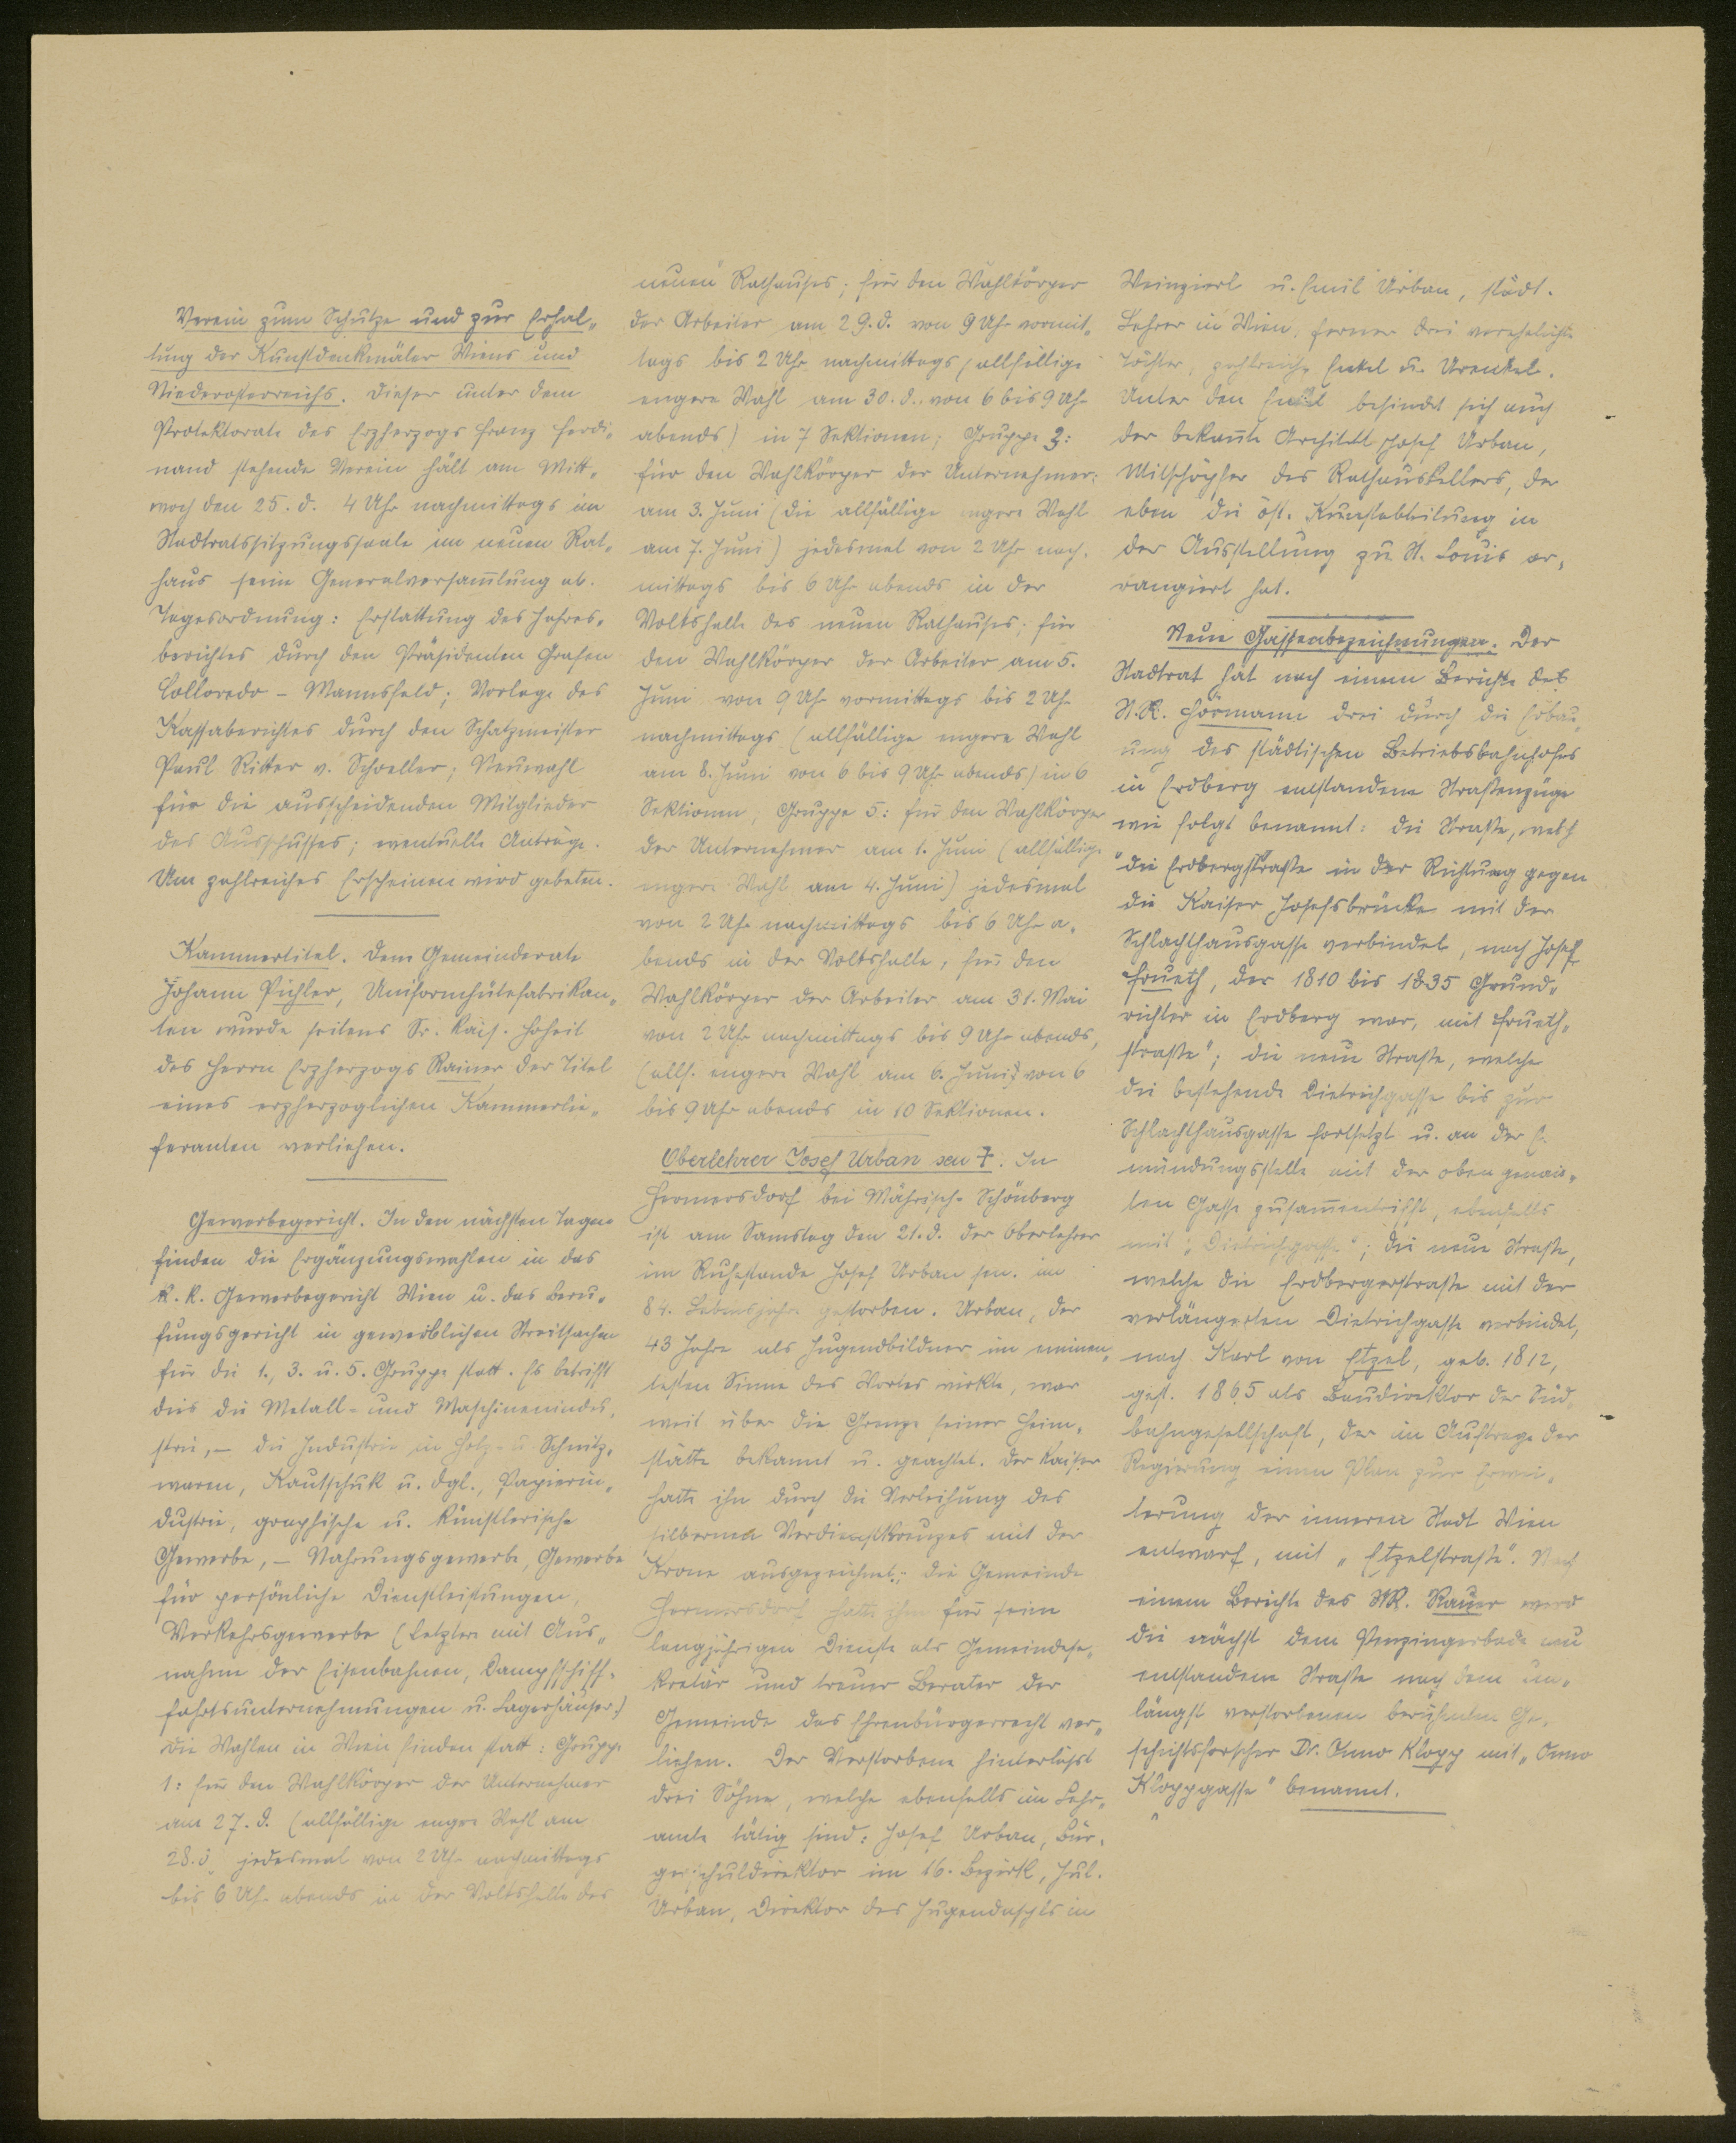 Verein zum Schutze und zur Erhal„
tung der Kunstdenkmäler Wiens und
Niederösterreichs. Dieser unter dem
Protektorate des Erzherzogs Franz Ferdi„
nand stehende Verein hält am Mitt„
woch den 25. d. 4 Uhr nachmittags im
Stadtratssitzungssaale im neuen Rat„
haus seine Generalversam̄lung ab.
Tagesordnung: Erstattung des Jahres„
berichtes durch den Präsidenten Grafen
Colloredo - Mannsfeld; Vorlage des
Kassaberichtes durch den Schatzmeister
Paul Ritter v. Schoeller; Neuwahl
für die ausscheidenden Mitglieder
des Ausschusses; eventuelle Anträge.
Um zahlreiches Erscheinen wird gebeten.
Kammertitel. Dem Gemeinderate
Johann Pichler, Uniformhütefabrikan„
ten wurde seitens Sr. kais. Hoheit
des Herrn Erzherzogs Rainer der Titel
eines erzherzoglichen Kammerlie„
feranten verliehen.
Gewerbegericht. In den nächsten Tagen
finden die Ergänzungswahlen in das
k. k. Gewerbegericht Wien u. das Beru„
fungsgericht in gewerblichen Streitsachen
für die 1., 3. u. 5. Gruppe statt. Es betrifft
dies die Metall- und Maschinenindu„
strie, – die Industrie in Holz- u. Schnitz„
waren, Kautschuk u. dgl., Papierin„
dustrie, graphische u. künstlerische
Gewerbe, – Nahrungsgewerbe, Gewerbe
für persönliche Dienstleistungen,
Verkehrsgewerbe (Letztere mit Aus„
nahme der Eisenbahnen, Dampfschiff„
fahrtsunternehmungen u. Lagerhäuser.)
Die Wahlen in Wien finden statt: Gruppe
1: für den Wahlkörper der Unternehmer
am 27. d. (allfällige engere Wahl am
28. d. jedesmal von 2 Uhr nachmittags
bis 6 Uhr abends in der Volkshalle des
neuen Rathauses; für den Wahlkörper
der Arbeiter am 29. d. von 9 Uhr vormit„
tags bis 2 Uhr nachmittags (allfällige
engere Wahl am 30. d. von 6 bis 9 Uhr
abends) in 7 Sektionen; Gruppe 3:
für den Wahlkörper der Unternehmer:
am 3. Juni (die allfällige engere Wahl
am 7. Juni) jedesmal von 2 Uhr nach„
mittags bis 6 Uhr abends in der
Volkshalle des neuen Rathauses; für
den Wahlkörper der Arbeiter am 5.
Juni von 9 Uhr vormittags bis 2 Uhr
nachmittags (allfällige engere Wahl
am 8. Juni von 6 bis 9 Uhr abends) in 6
Sektionen; Gruppe 5: für den Wahlkörper
der Unternehmer am 1. Juni (allfällige
engere Wahl am 4. Juni) jedesmal
von 2 Uhr nachmittags bis 6 Uhr a„
bends in der Volkshalle, für den
Wahlkörper der Arbeiter am 31. Mai
von 2 Uhr nachmittags bis 9 Uhr abends,
(allf. engere Wahl am 6. Juni) von 6
bis 9 Uhr abends in 10 Sektionen.
Oberlehrer Josef Urban sen †. In
Hermersdorf bei Mährisch-Schönberg
ist am Samstag den 21. d. der Oberlehrer
im Ruhestande Josef Urban sen. im
84. Lebensjahre gestorben. Urban, der
43 Jahre als Jugendbildner im eminen„
testen Sinne des Wortes wirkte, war
weit über die Grenze seiner Heim„
stätte bekannt u. geachtet. Der Kaiser
hatte ihn durch die Verleihung des
silbernen Verdienstkreuzes mit der
Krone ausgezeichnet; die Gemeinde
Hermersdorf hatte ihm für seine
langjährigen Dienste als Gemeindese„
kretär und treuer Berater der
Gemeinde das Ehrenbürgerrecht ver„
liehen. Der Verstorbene hinterlässt
drei Söhne, welche ebenfalls im Lehr„
amte tätig sind: Josef Urban, Bür„
gerschuldirektor im 16. Bezirk, Jul.
Urban, Direktor des Jugendasyls in
Weinzierl u. Emil Urban, städt.
Lehrer in Wien, ferner drei verehelichte
Töchter, zahlreiche Enkel u. Urenkel.
Unter den Enkel befindet sich auch
der bekan̄te Architekt Josef Urban,
Mitschöpfer des Rathauskellers, der
eben die öst. Kunstabteilung in
der Ausstellung zu St. Louis ar„
rangiert hat.
Neue Gassenbezeichnungen. Der
Stadtrat hat nach einem Berichte des
St. R. Hörmann drei durch die Erbau„
ung des städtischen Betriebsbahnhofes
in Erdberg entstandene Straßenzüge
wie folgt benannt: die Straße, welche
die Erdbergstraße in der Richtung gegen
die Kaiser Josefsbrücke mit der
Schlachthausgasse verbindet, nach Josef
Frueth, der 1810 bis 1835 Grund„
richter in Erdberg war, mit „Frueth„
straße"; die neue Straße, welche
die bestehende Dietrichgasse bis zur
Schlachthausgasse fortsetzt u. an der E.
mündungsstelle mit der oben genan̄„
ten Gasse zusam̄entrifft, ebenfalls
mit „Dietrichgasse"; die neue Straße,
welche die Erdbergerstraße mit der
verlängerten Dietrichgasse verbindet,
nach Karl von Etzel, geb. 1812,
gest. 1865 als Baudirektor der Süd„
bahngesellschaft, der im Auftrage der
Regierung einen Plan zur Erwei„
terung der inneren Stadt Wien
entwarf, mit „Etzelstraße". Nach
einem Berichte des StR. Rauer wird
die nächst dem Penzingerbade neu
entstandene Straße nach dem un„
längst verstorbenen berühmten Ge„
schichtsforscher Dr. Onno Klopp mit „Onno
Kloppgasse" benannt.